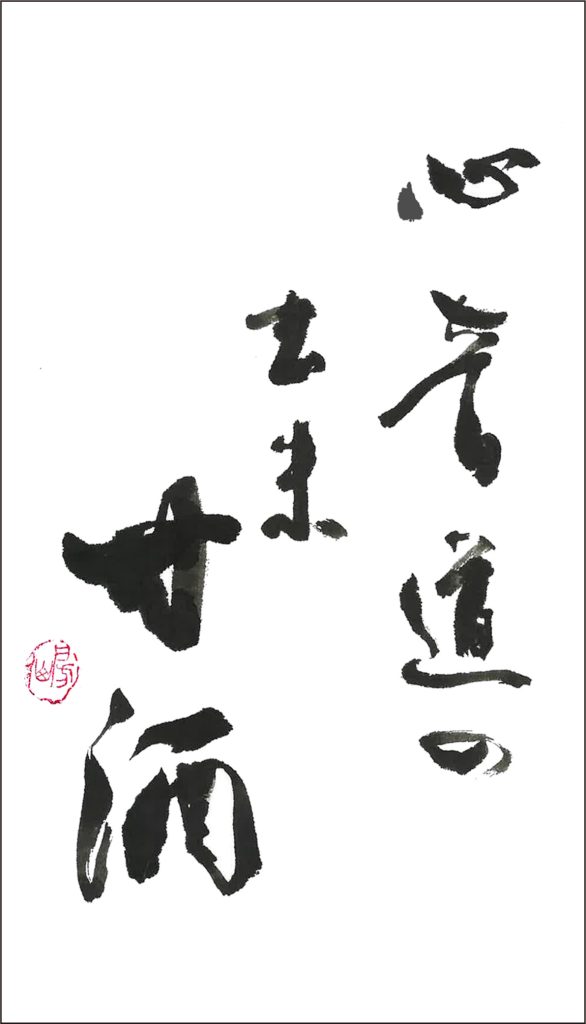 心音道の
去来
甘酒